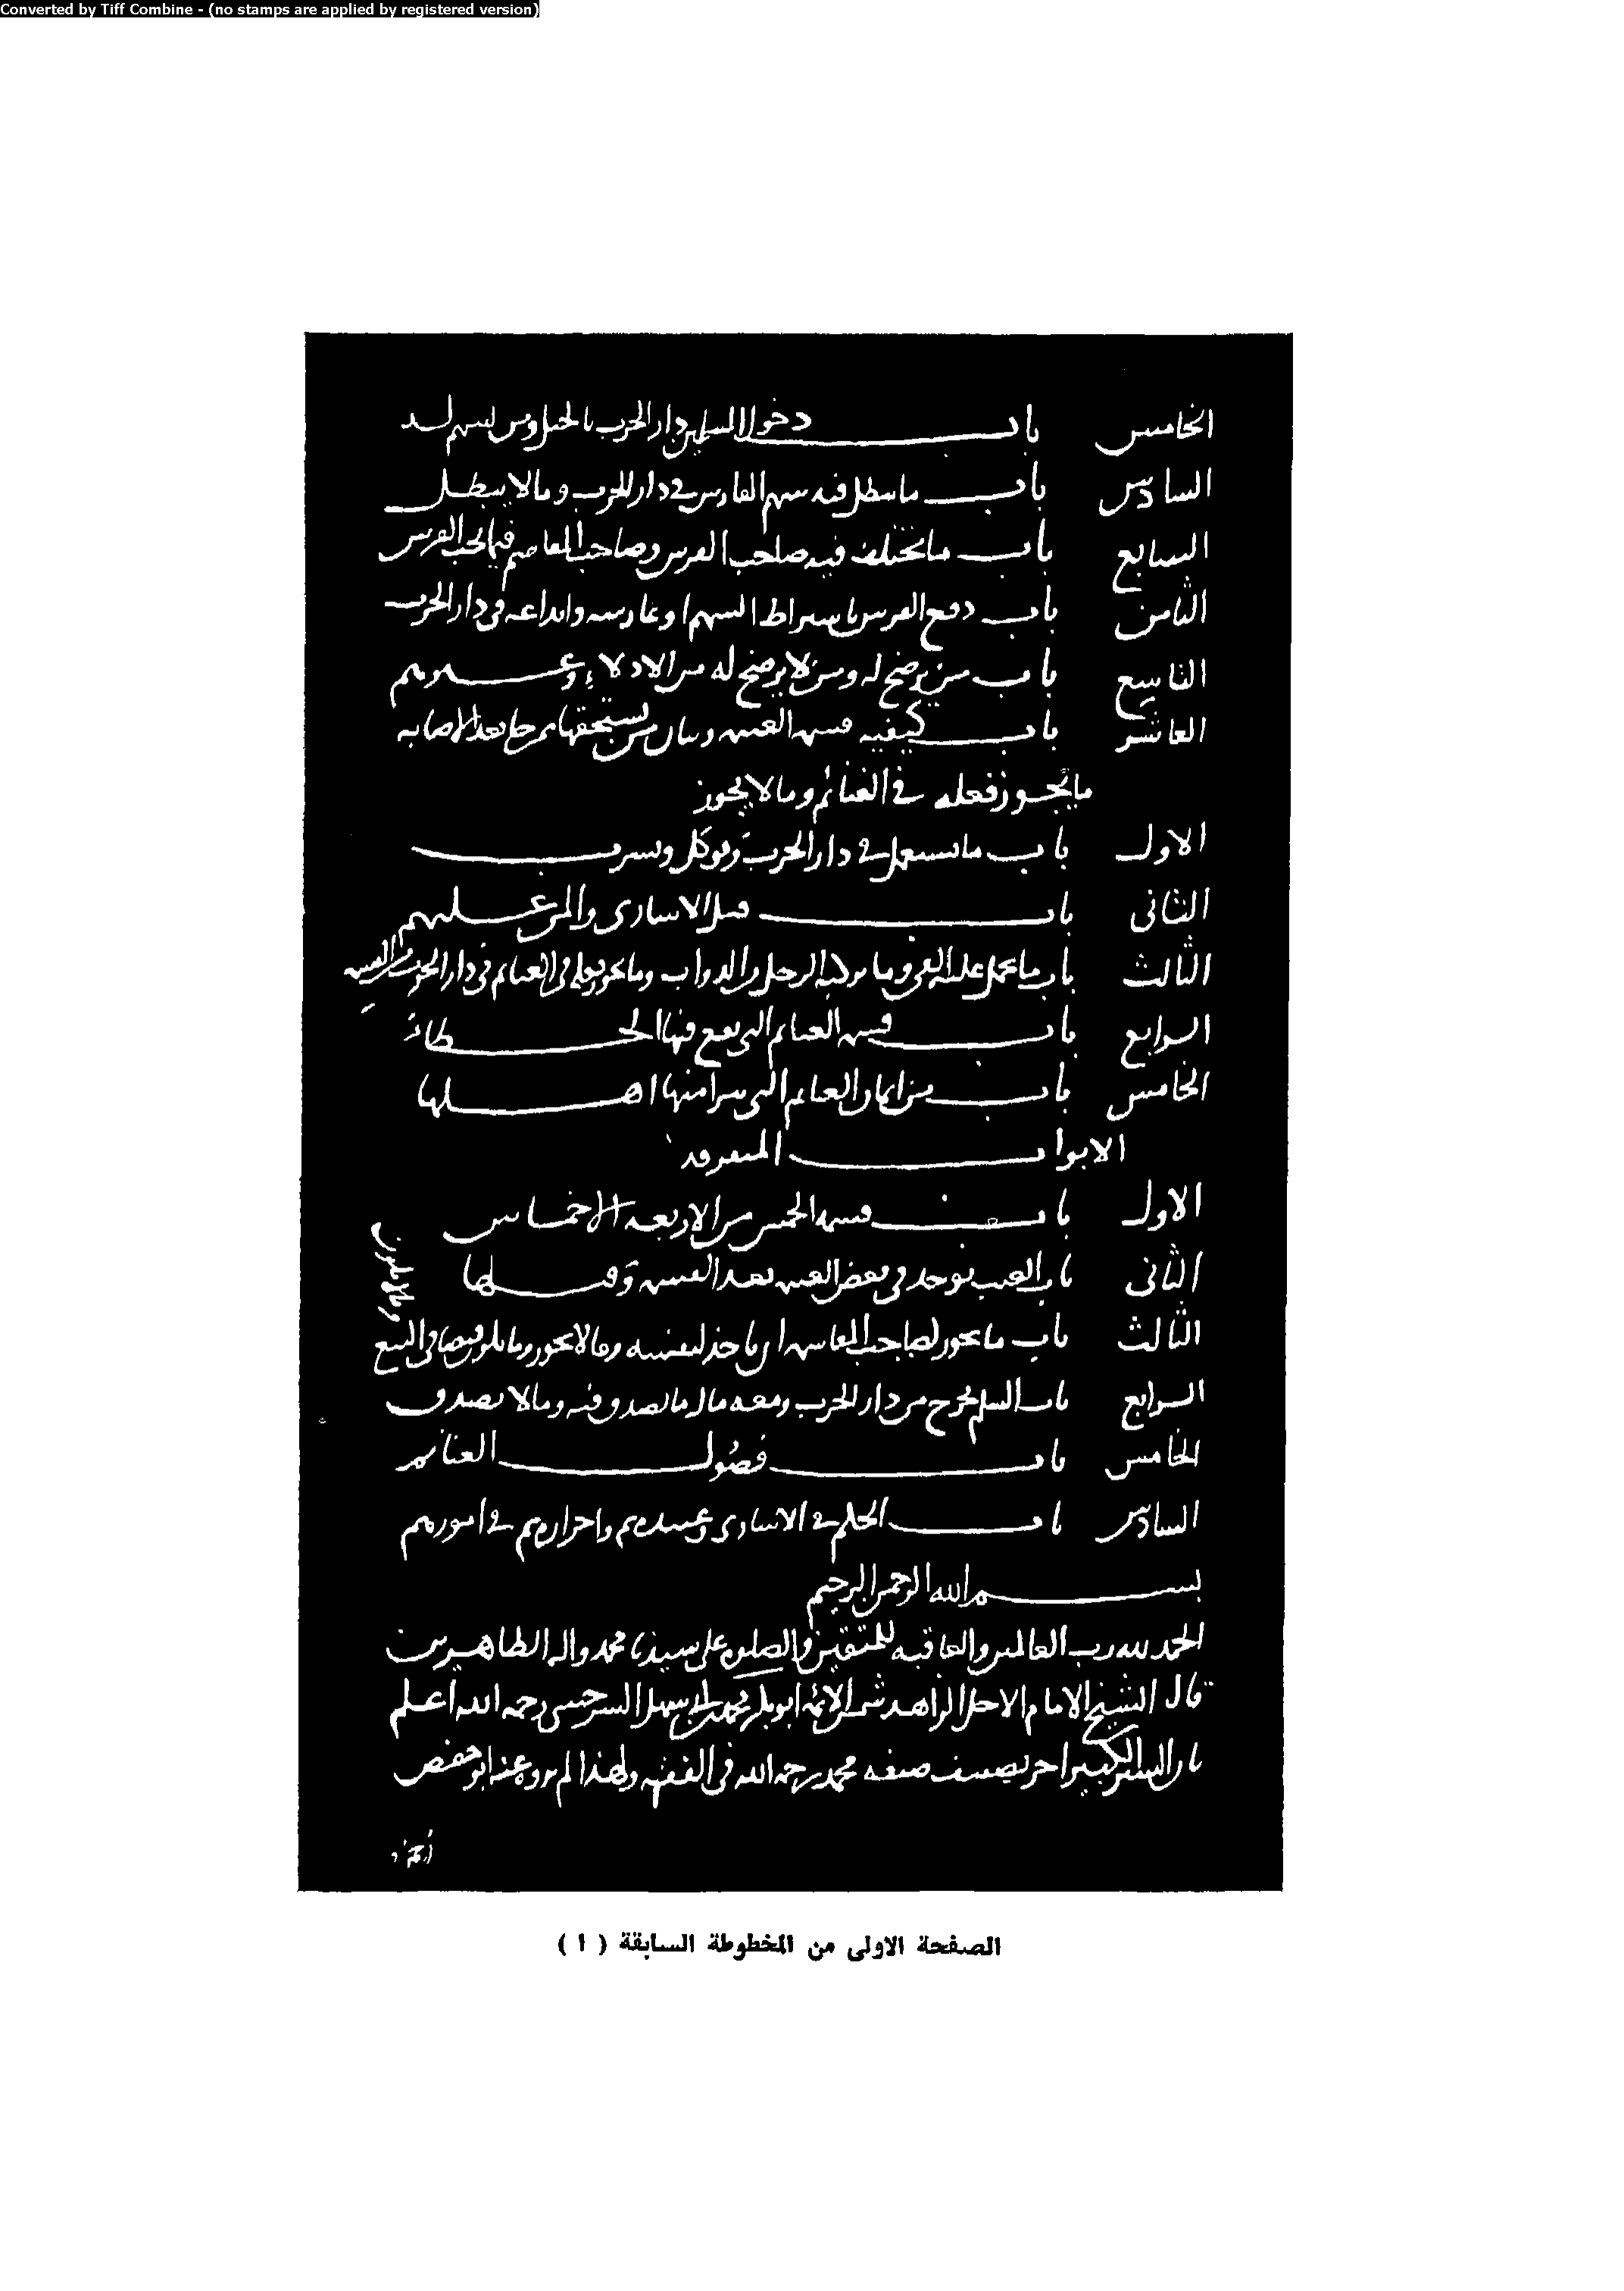 Converted by Tiff Combine - (no stamps are applied by registered version)
الخامس باب دخول المسلمين دار الحرب بالخيل ومن يسهم له
السادس باب ما يبطل فيه سهم الفارس في دار الحرب وما لا يبطل
السابع باب ما يختلف فيه صاحب الفرس وصاحب المقاسم في الفرس
الثامن باب دفع الفرس باشتراط السهم او عاريته وايداعه في دار الحرب
التاسع باب من يرضخ له ومن لا يرضخ له من الادلاء وغيرهم
العاشر باب كيفية قسمة الغنيمة وبيان من يستحقها ممن جا بعد الاصابه
ما يجوز فعله في الغنائم وما لا يجوز
الاول باب ما يستعمل في دار الحرب ويوكل ويشرب
الثاني باب قتل الاسارى والمن عليهم
الثالث باب ما يحمل عليه الفي وما يركبه الرجل من الدواب وما يجوز فعله في الغنائم في دار الحرب من القسمه
الرابع باب قسمه الغنائم التي يقع فيها الخطا
الخامس باب من الغنائم التي اهلها
الابواب المتفرقه
الاول باب قسمه الخمس من الاربعه الاخماس
الثاني باب العيب يوجد في بعض الغنيمه بعد القسمه وقبلها
الثالث باب ما يجوز لصاحب المقاسم ان ياخذ لنفسه وما لا يجوز وما في البيع
الرابع باب المسلم يخرج من دار الحرب ومعه مال ما يصدق فيه وما لا يصدق
الخامس باب فضول الغنائم
السادس باب الحكم في الاسارى وعبيدهم واحرارهم في امورهم
بسم الله الرحمن الرحيم
الحمد لله رب العالمين والعاقبه للمتقين والصلوه على سيدنا محمد واله الطاهرين
قال الشيخ الامام الاجل الزاهد شمس الائمه ابو بكر محمد بن ابي سهل السرخسي رحمه الله اعلم
بان السير الكبير اخر تصنيف صنفه محمد رحمه الله في الفقه ولهذا لم يروه عنه ابو حفص
الصفحة الاولى من المخطوطة السابقة ( ١ )